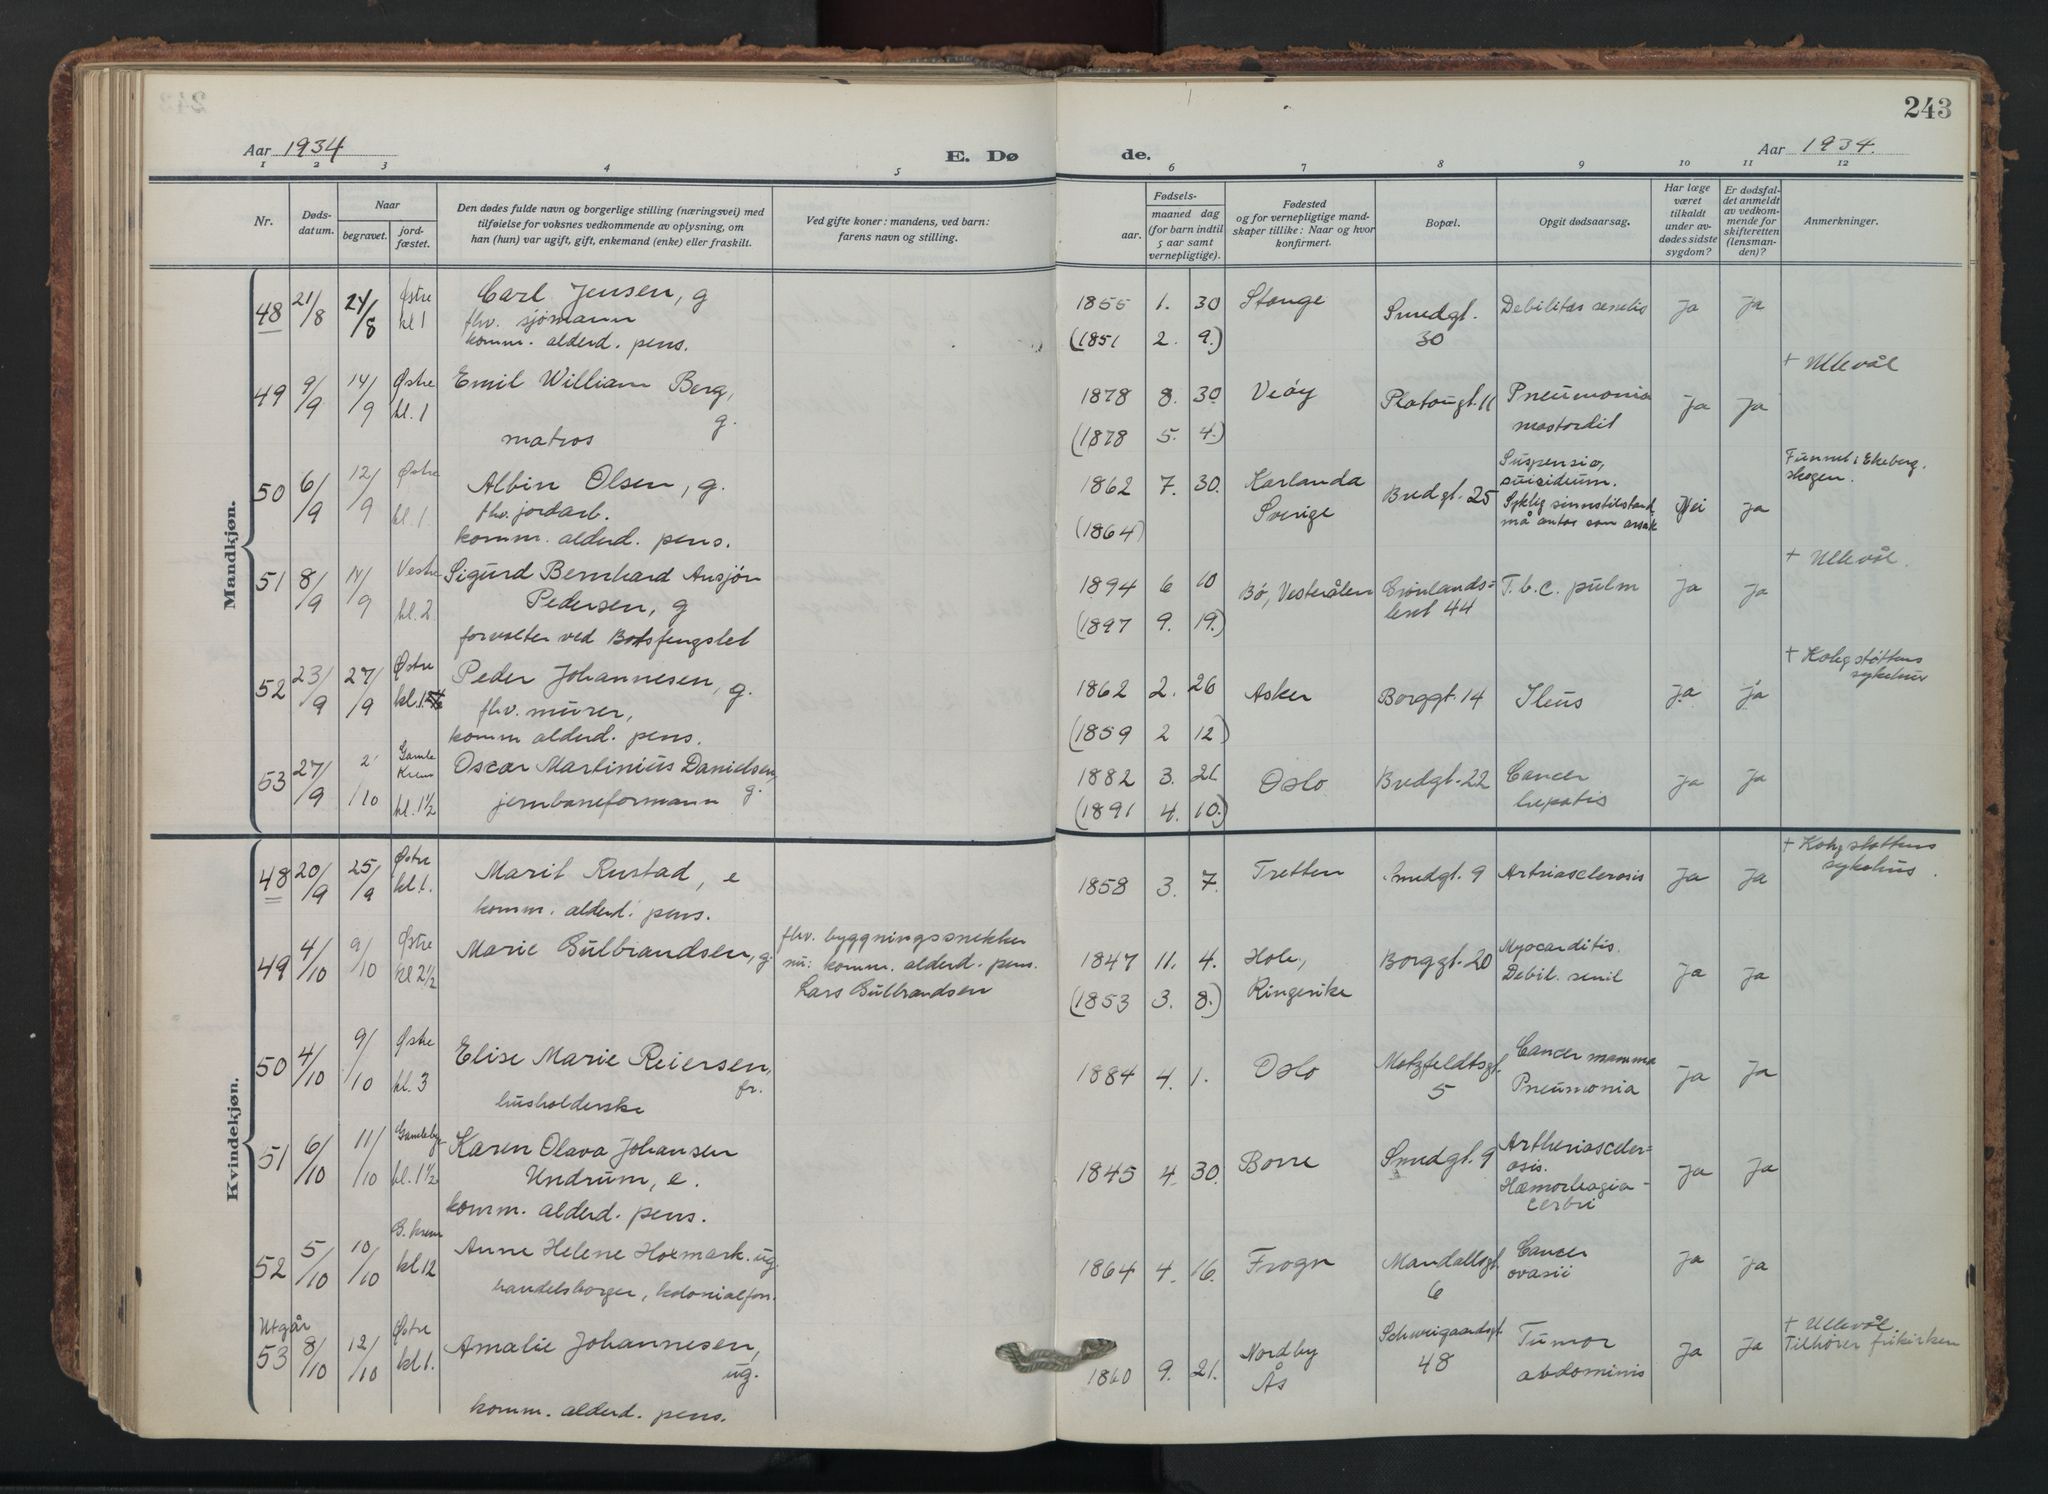 243
Aar 1934 E. Døde. Aar 1934.
1 2 3 4 5 6 7 8 9 10 11 12
Nr.
Døds-
datum.
Naar
begravet.
jord-
fæstet.
Den dødes fulde navn og borgerlige stilling (næringsvei) med
tilføielse for voksnes vedkommende av oplysning, om
han (hun) var ugift, gift, enkemand (enke) eller fraskilt.
Ved gifte koner: mandens, ved barn:
farens navn og stilling.
Fødsels-
aar.
maaned dag
(for barn indtil
5 aar samt
vernepligtige).
Fødested
og for vernepligtige mand-
skaper tillike: Naar og hvor
konfirmert.
Bopæl.
Opgit dødsaarsag.
Har læge
været
tilkaldt
under av-
dødes sidste
sygdom?
Er dødsfal-
det anmeldt
av vedkom-
mende for
skifteretten
(lensman-
den)?
Anmerkninger.
Mandkjøn.
48 21/8 24/8 Østre kl 1 Carl Jensen, g 1855 1. 30 Stange Smedgt. 30 Debilitas senilis Ja Ja
fhv. sjömann
komm. alderd. pens. (1851 2. 9.)
49 9/9 14/9 Østre kl. 1 Emil William Berg, g. 1878 8. 30 Veöy Platougt. 11 Pneumonia Ja Ja + Ullevål
matros (1878 5. 4.) mastordit
50 6/9 12/9 Østre kl. 1. Albin Olsen, g. 1862 7. 30. Karlanda Sverige Bredgt. 25 Suspensio, suicidium. Nei Ja Funnet i Ekeberg-
skogen.
fhv. jordarb. Syklig sinnstilstand
komm. alderd. pens. (1864) må antas som årsak
51 8/9 14/9 Vestre kl. 2 Sigurd Bernhard Ansjön 1894 6 10 Bö, Vesterålen Grönlands-
leret 44 T. b. c. pulm Ja Ja + Ullevål.
Pedersen, g (1897 9. 19.)
forvalter ved Botsfengslet
52 23/9 27/9 Østre kl. 1 Peder Johannesen, g. 1862 2. 26 Asker Borggt. 14 Ileus Ja Ja + Kolgstøttens
sykehus
fhv. murer,
komm alderd. pens. (1859 2 12)
53 27/9 2/10 Gamle Krem kl. 1½ Oscar Martinius Danielsen, g. 1882 3. 21. Oslo Bredgt. 22 Cancer hepatis Ja Ja
jernbaneformann (1891 4. 10.)
Kvindekjøn.
48 20/9 25/9 Østre kl 1. Marit Rustad, e 1858 3. 7. Tretten Smedgt. 9 Artriasclerosis Ja Ja + Kolgstøttens
sykehus.
komm. alderd. pens.
49 4/10 9/10 Østre kl 2½ Marie Gulbrandsen, g. fhv. byggningssnekker
nu: komm. alderd. pens.
Lars Gulbrandsen 1847 11. 4. Hole, Ringerike Borggt. 20 Myocarditis. Debil. senil Ja Ja
(1853 3. 8.)
50 4/10 9/10 Østre kl. 3 Elise Marie Reiersen, fr. 1884 4. 1. Oslo Motzfeldtsgt. 5 Cancer mamma Pneumonia Ja Ja
husholderske
51 6/10 11/10 Gamleby kl. 1½ Karen Olava Johansen 1845 4. 30. Borre Smedgt. 9 Artheriascler-
osis. Hæmorhagia cerbri Ja Ja
Undrum, e.
komm. alderd. pens.
52 5/10 10/10 G. krem kl 12 Anne Helene Hormark. ug. 1864 4. 16. Frogn Mandallsgt. 6 Cancer ovarii Ja Ja
handelsborger, kolonialforr.
Utgår
53 8/10 12/10 Østre kl 1. Amalie Johannesen, ug. 1860 9. 21. Nordby Ås Schweigaardsgt. 48 Tumor abdominis Ja Ja + Ullevål
Tilhører frikirken
komm. alderd. pens.